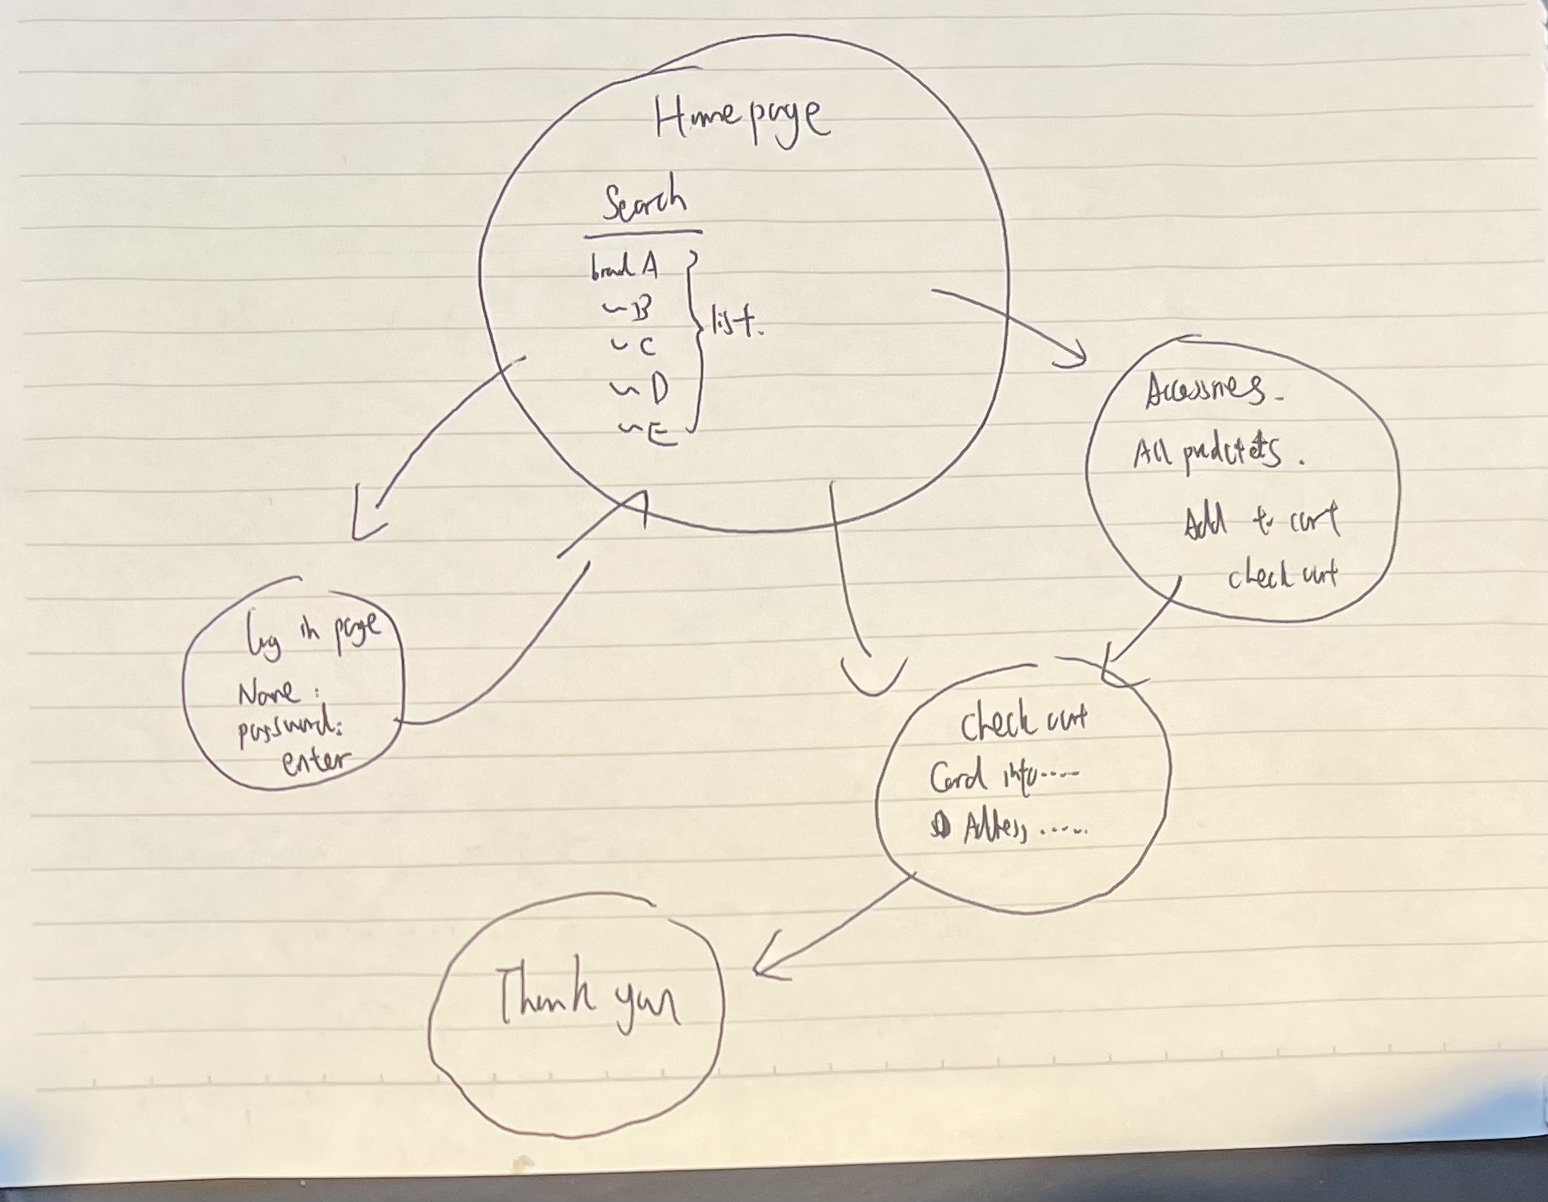 Homepage
Search
brand A
~B
~C
~D
~E
list.
Accessories.
All products.
Add to cart
check out
Log in page
Name:
password:
enter
check out
Card info.....
Address.....
Thank you